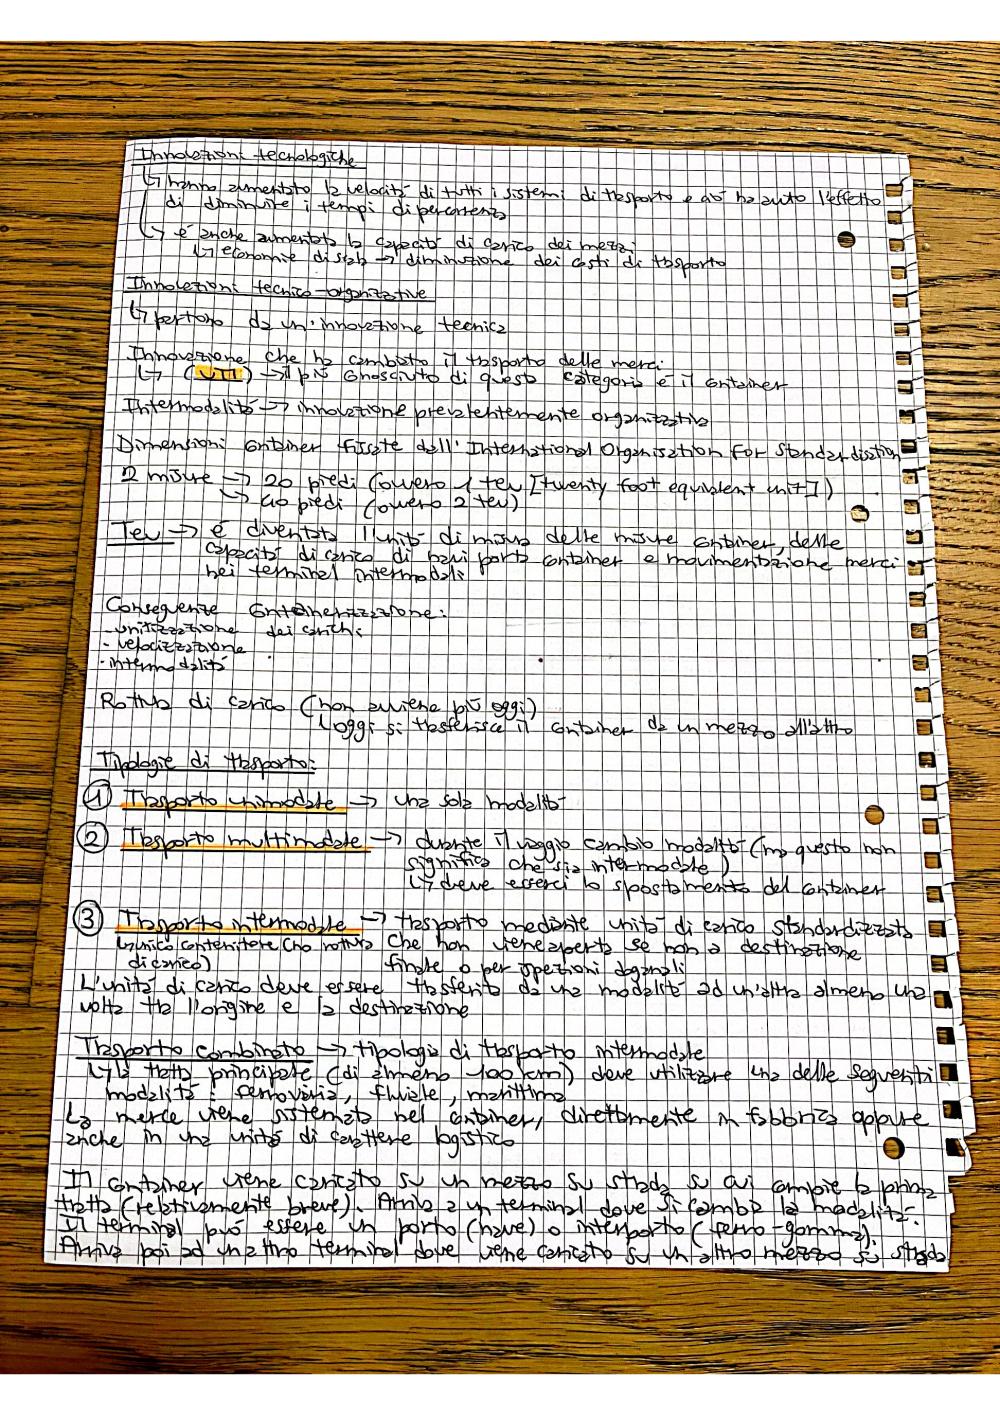 Innovazioni tecnologiche
↳ hanno aumentato la velocità di tutti i sistemi di trasporto e ciò ha avuto l'effetto
di diminuire i tempi di percorrenza
↳ è anche aumentata la capacità di carico dei mezzi
↳ economie di scala → diminuzione dei costi di trasporto
Innovazioni tecnico-organizzative
↳ partono da un'innovazione tecnica
Innovazione che ha cambiato il trasporto delle merci
↳ (UTI) → il più conosciuto di questa categoria è il container
Intermodalità → innovazione prevalentemente organizzativa
Dimensioni container fissate dall'International Organisation For Standardisation
2 misure → 20 piedi (ovvero 1 teu [twenty foot equivalent unit])
↳ 40 piedi (ovvero 2 teu)
Teu → è diventata l'unità di misura delle misure container, delle
capacità di carico di navi porta container e movimentazione merci
nei terminal intermodali
Conseguenze containerizzazione:
- unitizzazione dei carichi
- velocizzazione
- intermodalità
Rottura di carico (non avviene più oggi)
↳ oggi si trasferisce il container da un mezzo all'altro
Tipologie di trasporto:
① Trasporto unimodale → una sola modalità
② Trasporto multimodale → durante il viaggio cambio modalità (ma questo non
significa che sia intermodale)
↳ deve esserci lo spostamento del container
③ Trasporto intermodale → trasporto mediante unità di carico standardizzata
↳ unico contenitore (no rottura che non viene aperta se non a destinazione
di carico) finale o per ispezioni doganali
L'unità di carico deve essere trasferita da una modalità ad un'altra almeno una
volta tra l'origine e la destinazione
Trasporto combinato → tipologia di trasporto intermodale
↳ la tratta principale (di almeno 100 km) deve utilizzare una delle seguenti
modalità: ferroviaria, fluviale, marittima
La merce viene sistemata nel container, direttamente in fabbrica oppure
anche in una unità di carattere logistico
Il container viene caricato su un mezzo su strada su cui compie la prima
tratta (relativamente breve). Arriva a un terminal dove si cambia la modalità.
Il terminal può essere un porto (nave) o interporto (ferro-gomma).
Arriva poi ad un altro terminal dove viene caricato su un altro mezzo su strada